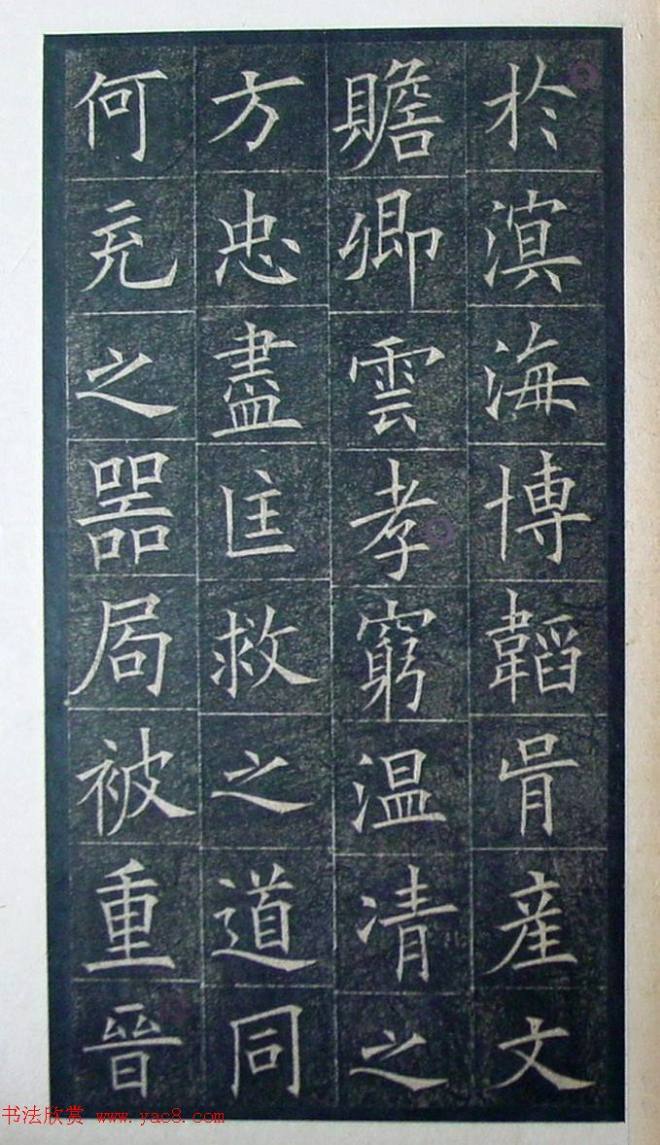 於溟海博韜胥産文
贍卿雲孝窮温清之
方忠盡匡救之道同
何充之器局被重晉
书法欣赏 www.yac8.com